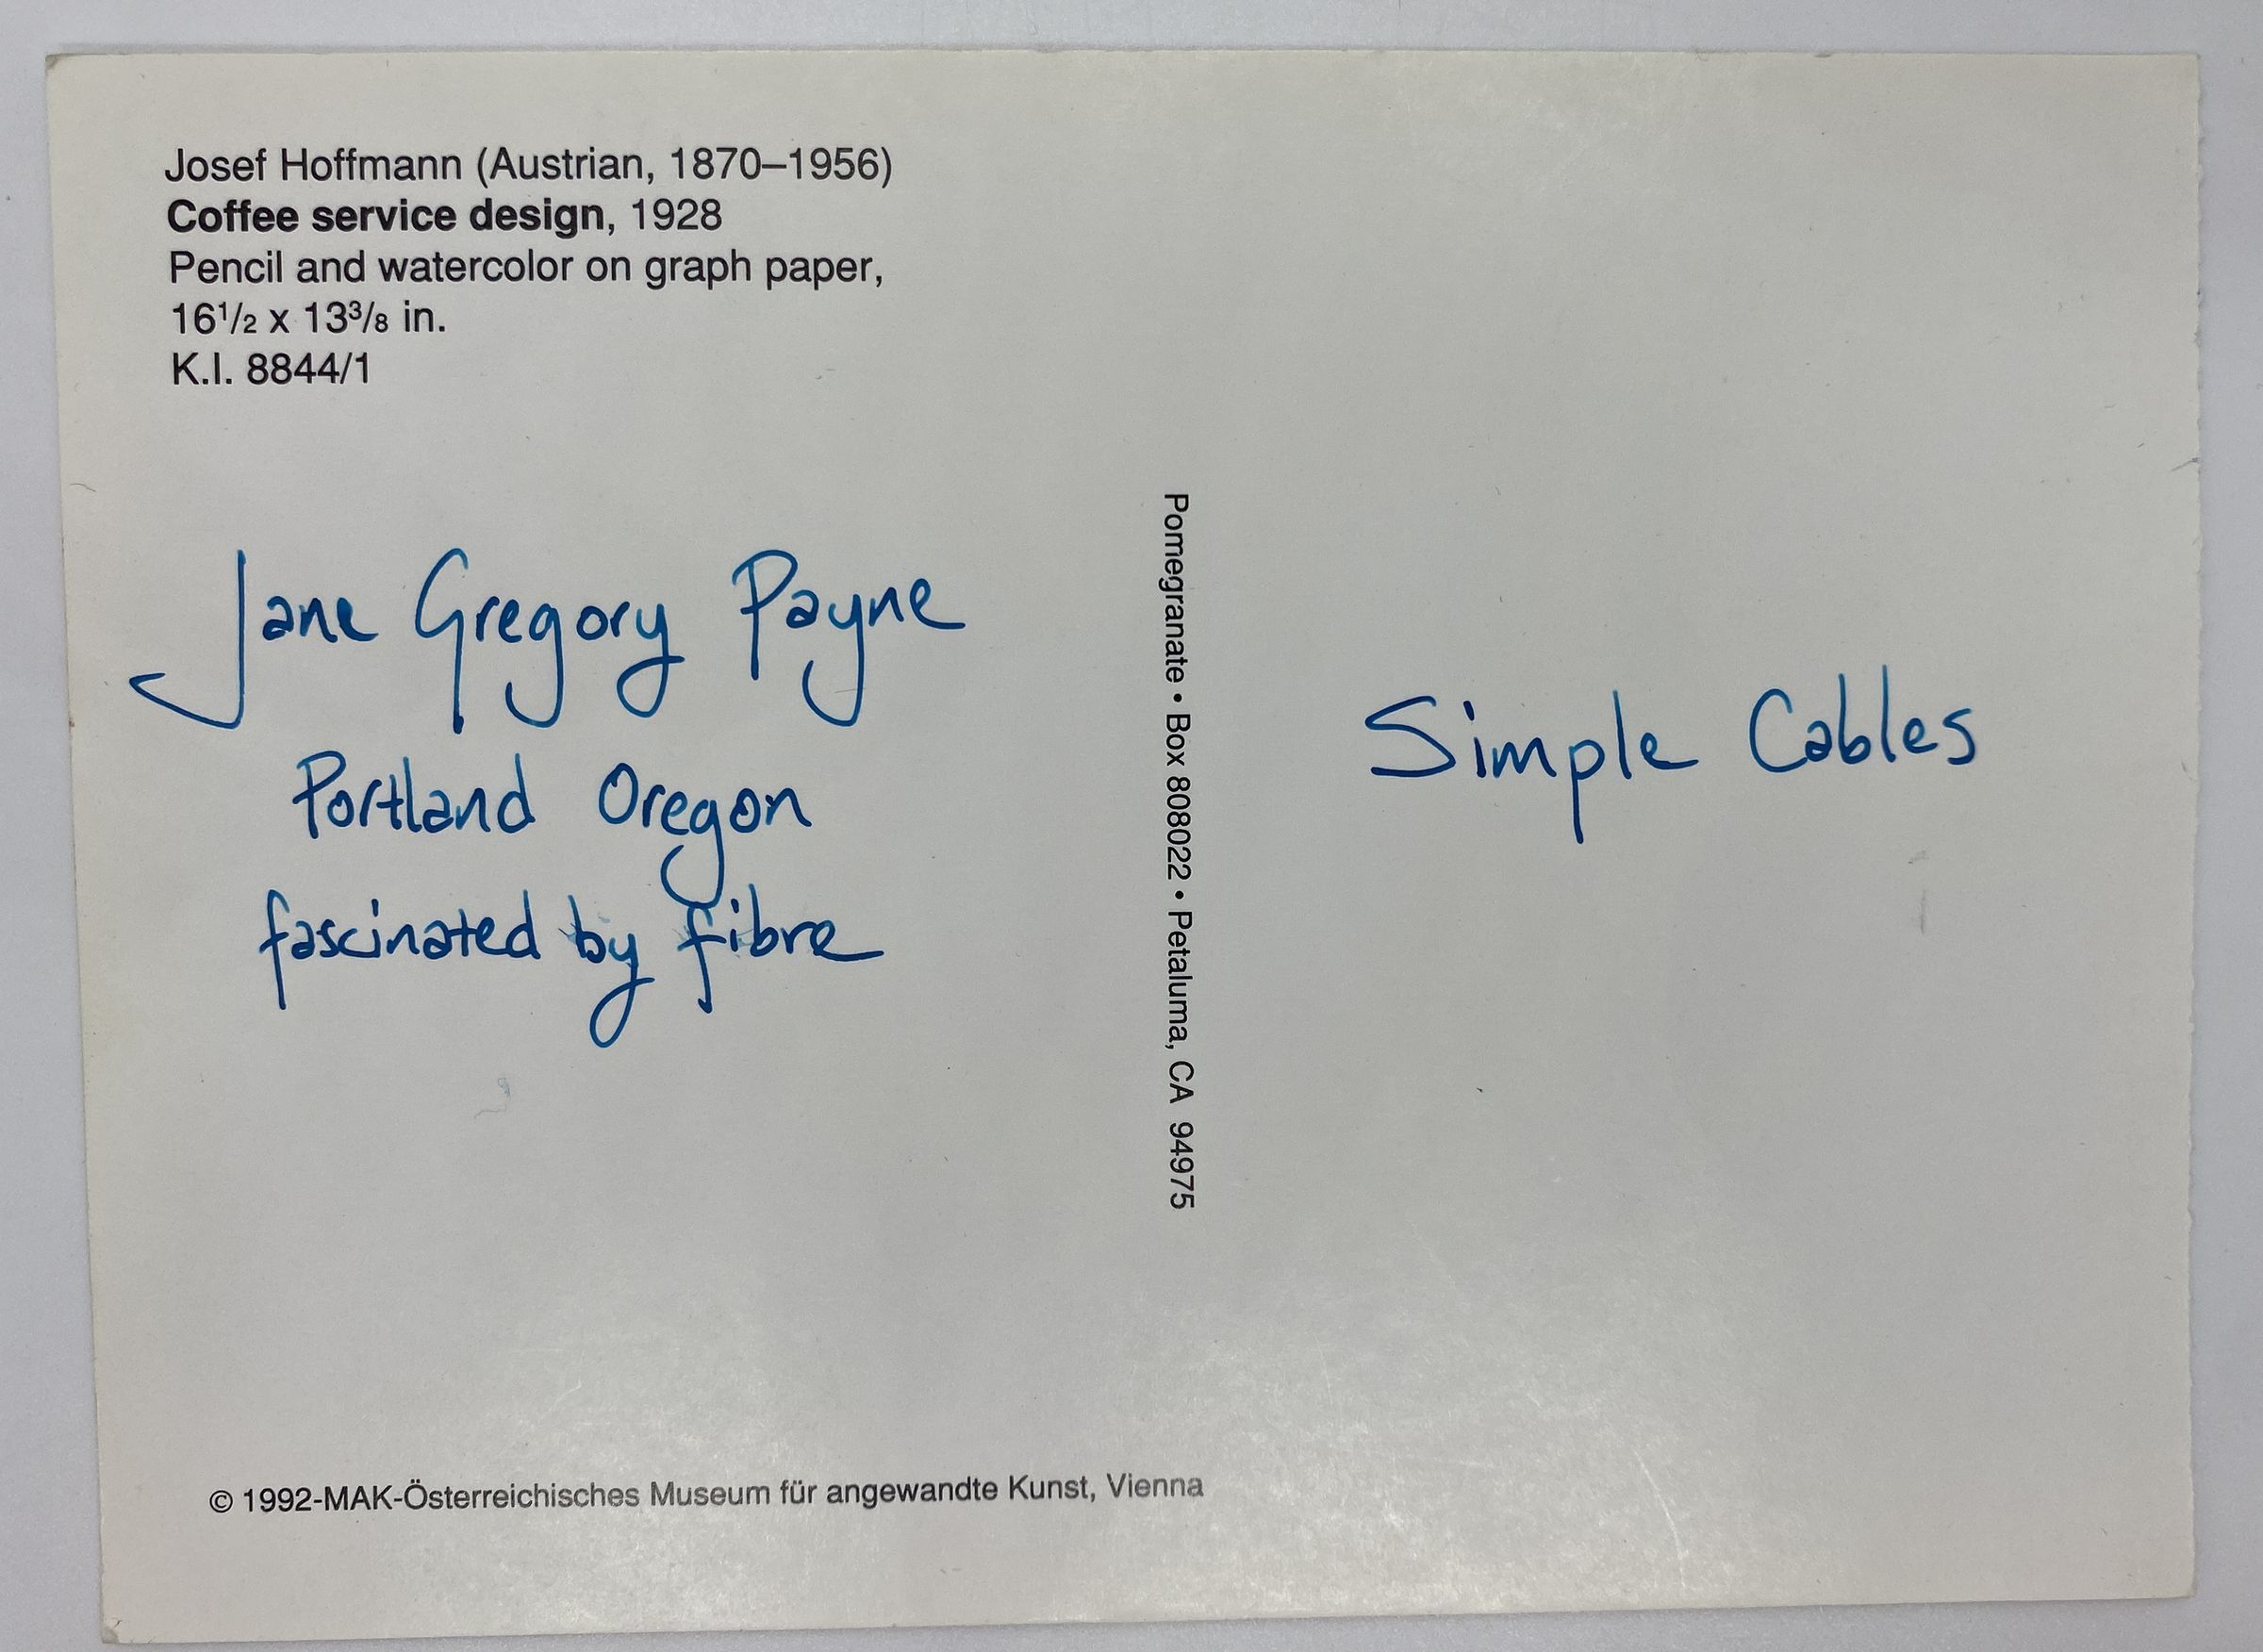 Josef Hoffmann (Austrian, 1870–1956)
Coffee service design, 1928
Pencil and watercolor on graph paper,
16½ x 13⅜ in.
K.I. 8844/1
Jane Gregory Payne
Portland Oregon
fascinated by fibre
Pomegranate • Box 808022 • Petaluma, CA 94975
Simple Cables
© 1992-MAK-Österreichisches Museum für angewandte Kunst, Vienna